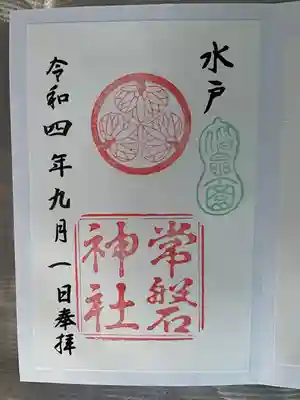 水戸
偕楽園
常磐
神社
令和四年九月一日奉拝